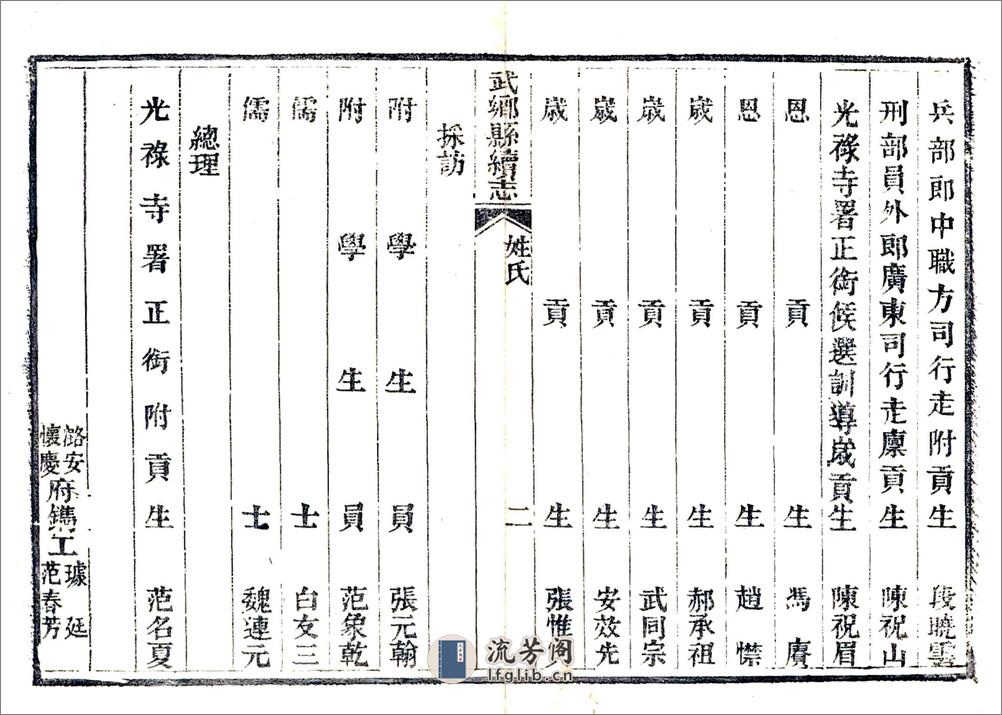 兵部郎中職方司行走附貢生 段曉雲
刑部員外郎廣東司行走廩貢生 陳祝山
光祿寺署正銜候選訓導歲貢生 陳祝眉
恩貢生 馮賡
恩貢生 趙㦗
歲貢生 郝承祖
歲貢生 武同宗
歲貢生 安效先
歲貢生 張惟
武鄉縣續志 姓氏 二
採訪
附學生員 張元翰
附學生員 范象乾
儒士 白友三
儒士 魏連元
總理
光祿寺署正銜附貢生 范名夏
潞安懷慶府鐫工 璩廷 范春芳
流芳阁
lfglib.cn